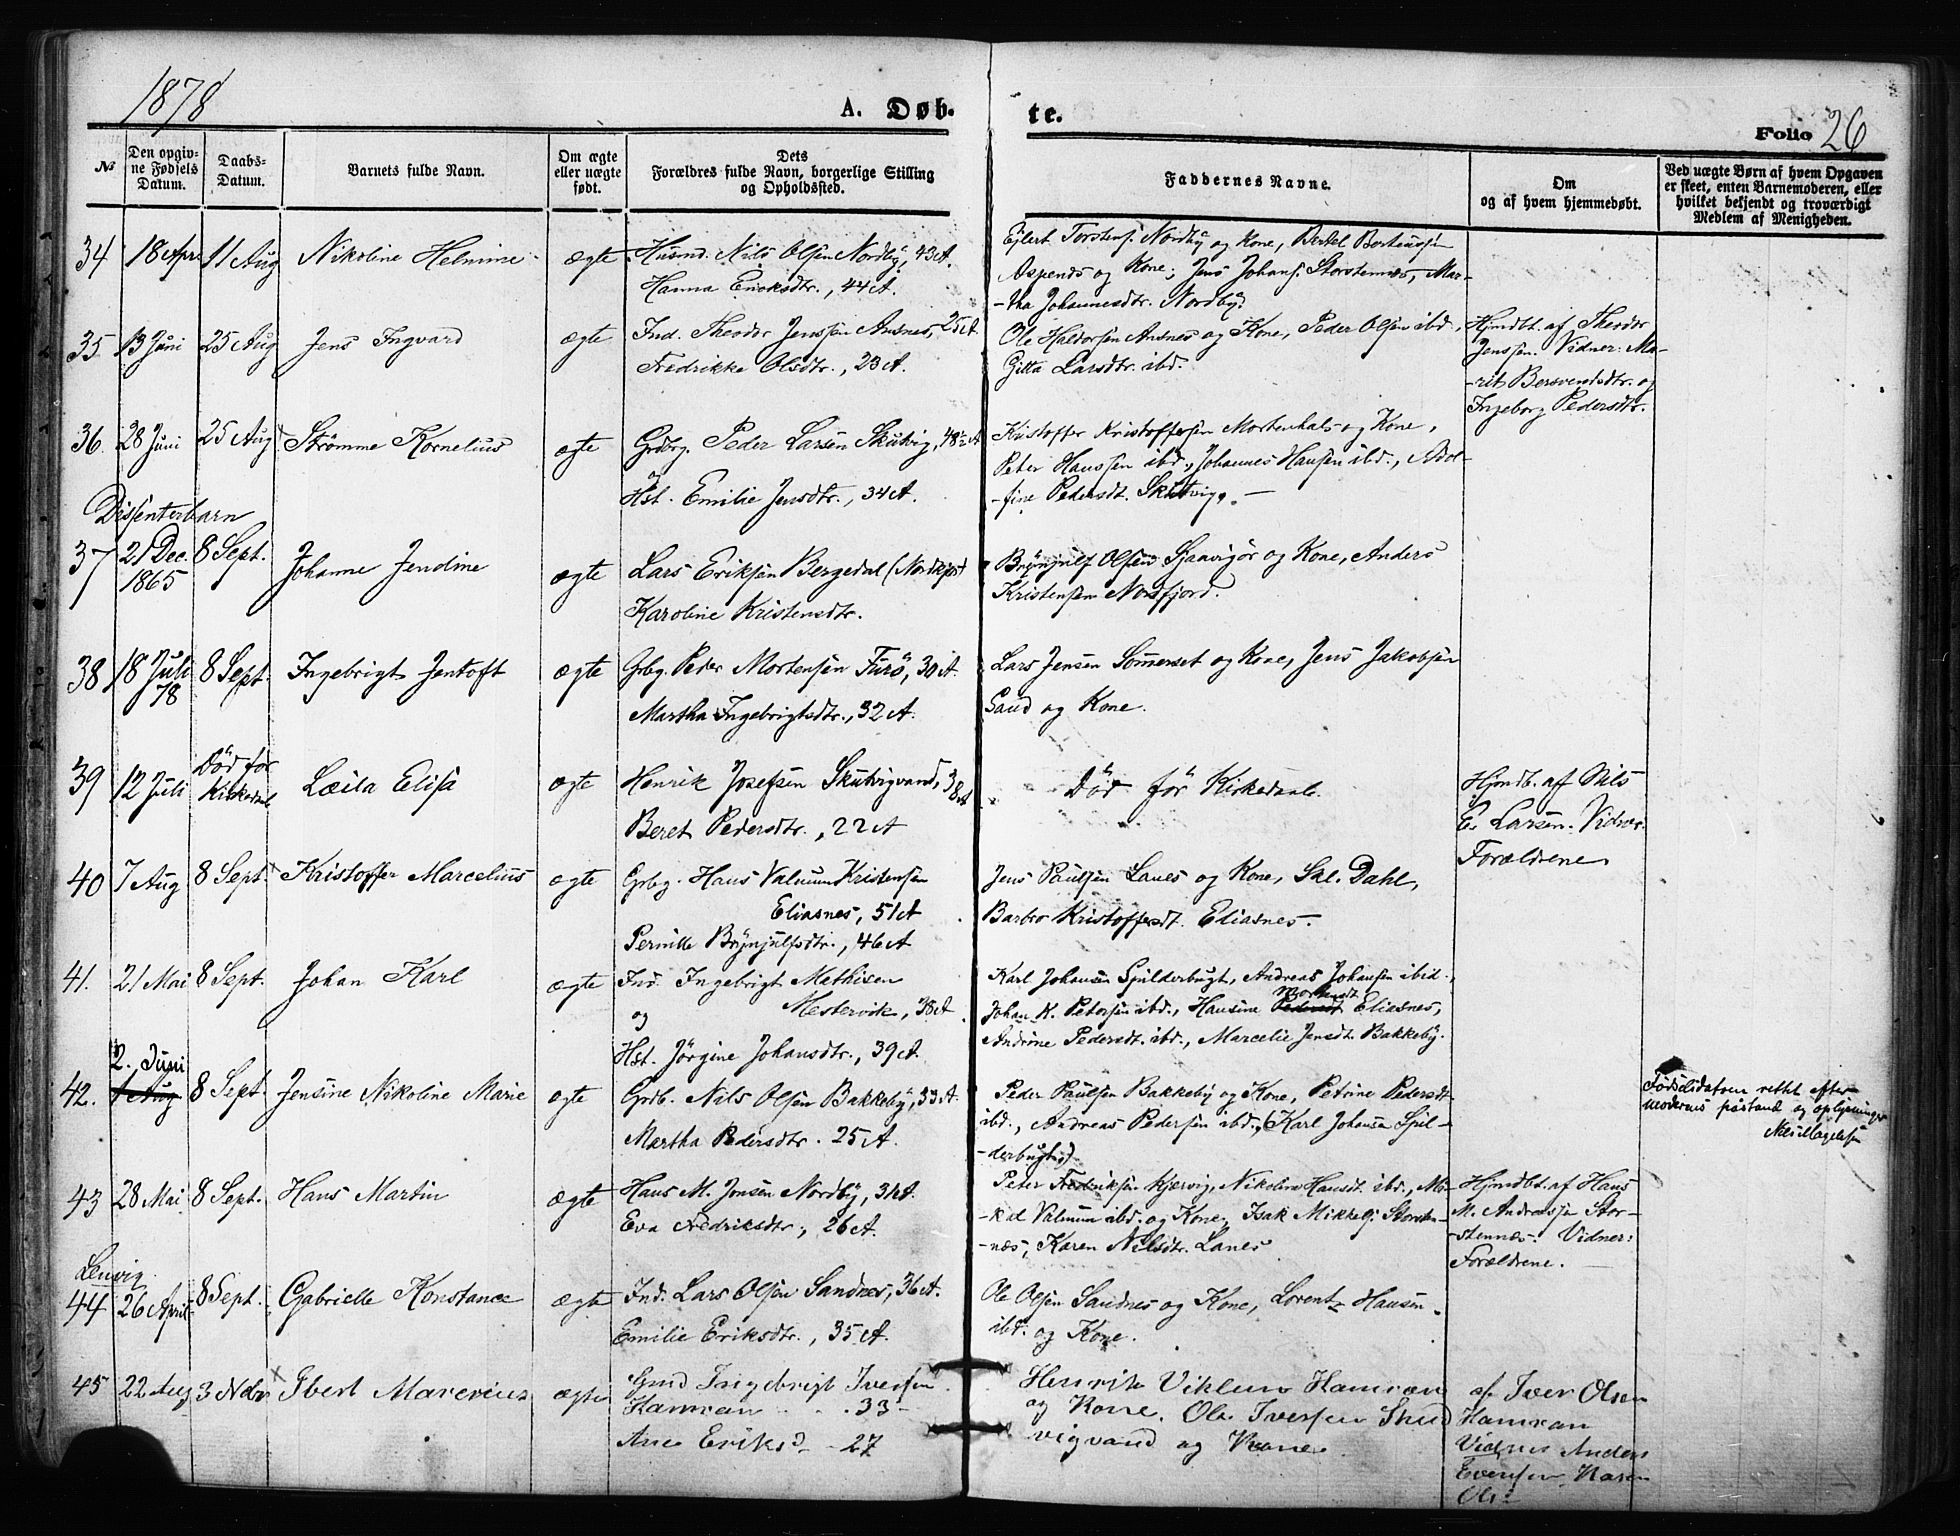 1878
A. Døb-
te.
Folio 26
№
Den opgiv-
ne Fødsels
Datum.
Daabs-
Datum.
Barnets fulde Navn.
Om ægte
eller uægte
født.
Dets
Forældres fulde Navn, borgerlige Stilling
og Opholdssted.
Faddernes Navne.
Om
og af hvem hjemmedøbt.
Ved uægte Børn af hvem Opgaven
er skeet, enten Barnemoderen, eller
hvilket bekjendt og troværdigt
Medlem af Menigheden.
34 18 Apr 11 Aug Nikoline Helmine ægte
Husmd. Nils Olsen Nordby, 43 A.
Hanna Enoksdtr., 44 A.
Ejlert Torstens. Nordby og Kone, Bertel Berteussen
Aspenes og Kone, Jens Johans. Storstennes, Mar-
-tha Johannesdtr. Nordby.
35 13 Juni 25 Aug Jens Ingvard ægte
Ind. Theodor Jenssen Ansnes, 25 A.
Fredrikke Olsdtr., 23 A.
Ole Haldorsen Ansnes og Kone, Peder Olsen ibd.,
Gitta Larsdtr. ibd.
Hjmdbt. af Theodor
Jenssen. Vidner: Ma-
-rit Bersvendsdtr. og
Ingeborg Pedersdtr.
36. 28 Juni 25 Aug Strømme Kornelius ægte
Grdbrg. Peder Larsen Skutvig, 48½ A
og
Hst. Emilie Jensdtr., 34 A.
Kristoffer Kristoffersen Mortenhals og Kone,
Peter Hanssen ibd., Johannes Hansen ibd., Ador-
-fine Pedersdt. Skutvig. —
Dissenterbarn
37 21 Dec. 1865 8 Sept. Johanne Jendine ægte
Lars Eriksen Bergedal (Nordkjos)
Karoline Kristensdtr.
Brynjulf Olsen Sjaavigør og Kone, Anders
Kristensen Nordfjord.
38 18 Juli 78 8 Sept. Ingebrigt Jentoft ægte
Grbg. Peder Mortensen Furö, 30 A.
Martha Ingebrigtsdtr., 32 A.
Lars Jensen Sommerset og Kone, Jens Jakobsen
Sand og Kone.
39 12 Juli Död før Kirkedaab Læila Elisa ægte
Henrik Josefsen Skutvigvand, 38 A
Beret Pedersdtr., 22 A
Död før Kirkedaab.
Hjmdb. af Nils
E. Larsen. Vidner:
Forældrene
40 7 Aug 8 Sept. Kristoffer Marcelius ægte
Grbg. Hans Valnum Kristensen
Eliasnes, 51 A
Pernille Brynjulfsdtr., 46 A
Jens Paulsen Lanes og Kone, Skl. Dahl,
Barbro Kristoffersdt. Eliasnes.
41. 21 Mai 8 Sept. Johan Karl ægte
Ind. Ingebrigt Mathisen
Mestervik, 38 A.
og
Hst. Jörgine Johansdtr., 39 A.
Karl Johansen Spilderbugt, Andreas Johansen ibid.,
Johan K. Petersen ibd., Hansine Pedersdt Mortensdt Eliasnes,
Andrine Pedersdt. ibd., Marcelie Jensdt. Bakkeby.
2. Juni
42. 1 Aug 8 Sept. Jensine Nikoline Marie ægte
Grdb. Nils Olsen Bakkeby, 33 A.
Martha Pedersdtr. 25 A.
Peder Paulsen Bakkeby og Kone, Petrine Pedersdt.
ibd., Andreas Pedersen ibd., (Karl Johansen Spil-
-derbugt.)
Fødselsdatoen rettet efter
moderens påstand og oplysninger
Nils Magelssen
43 28 Mai 8 Sept. Hans Martin ægte
Hans M. Jensen Nordby, 34 A.
Eva Fredriksdtr., 26 A.
Peter Fredriksen Kjærvig, Nikoline Hansdt. ibd., Mi-
-kal Valnum ibd. og Kone, Isak Mikkels. Storsten-
-næs, Karen Nilsdtr. Lanes
Hjmdbt. af Hans
M. Andreassen Stor-
-stennæs. Vidner:
Forældrene.
Lenvig.
44 26 April 8 Sept. Gabrielle Konstance ægte
Ind. Lars Olsen Sandnes, 36 A.
Emilie Eriksdtr., 35 A.
Ole Olsen Sandnes og Kone, Lorentz Hansen
ibd. og Kone.
45 22 Aug 3 Nobr Ibert Marenius ægte
Gmd Ingebrigt Iversen
Hamran 33
Ane Eriksd 27
Henrik Viklund Hamran
og Kone. Ole Iversen Skud
vigvand og Kone.
af Iver Olsen
Hamran
Vidner Anders
Evensen, Karen
Ols